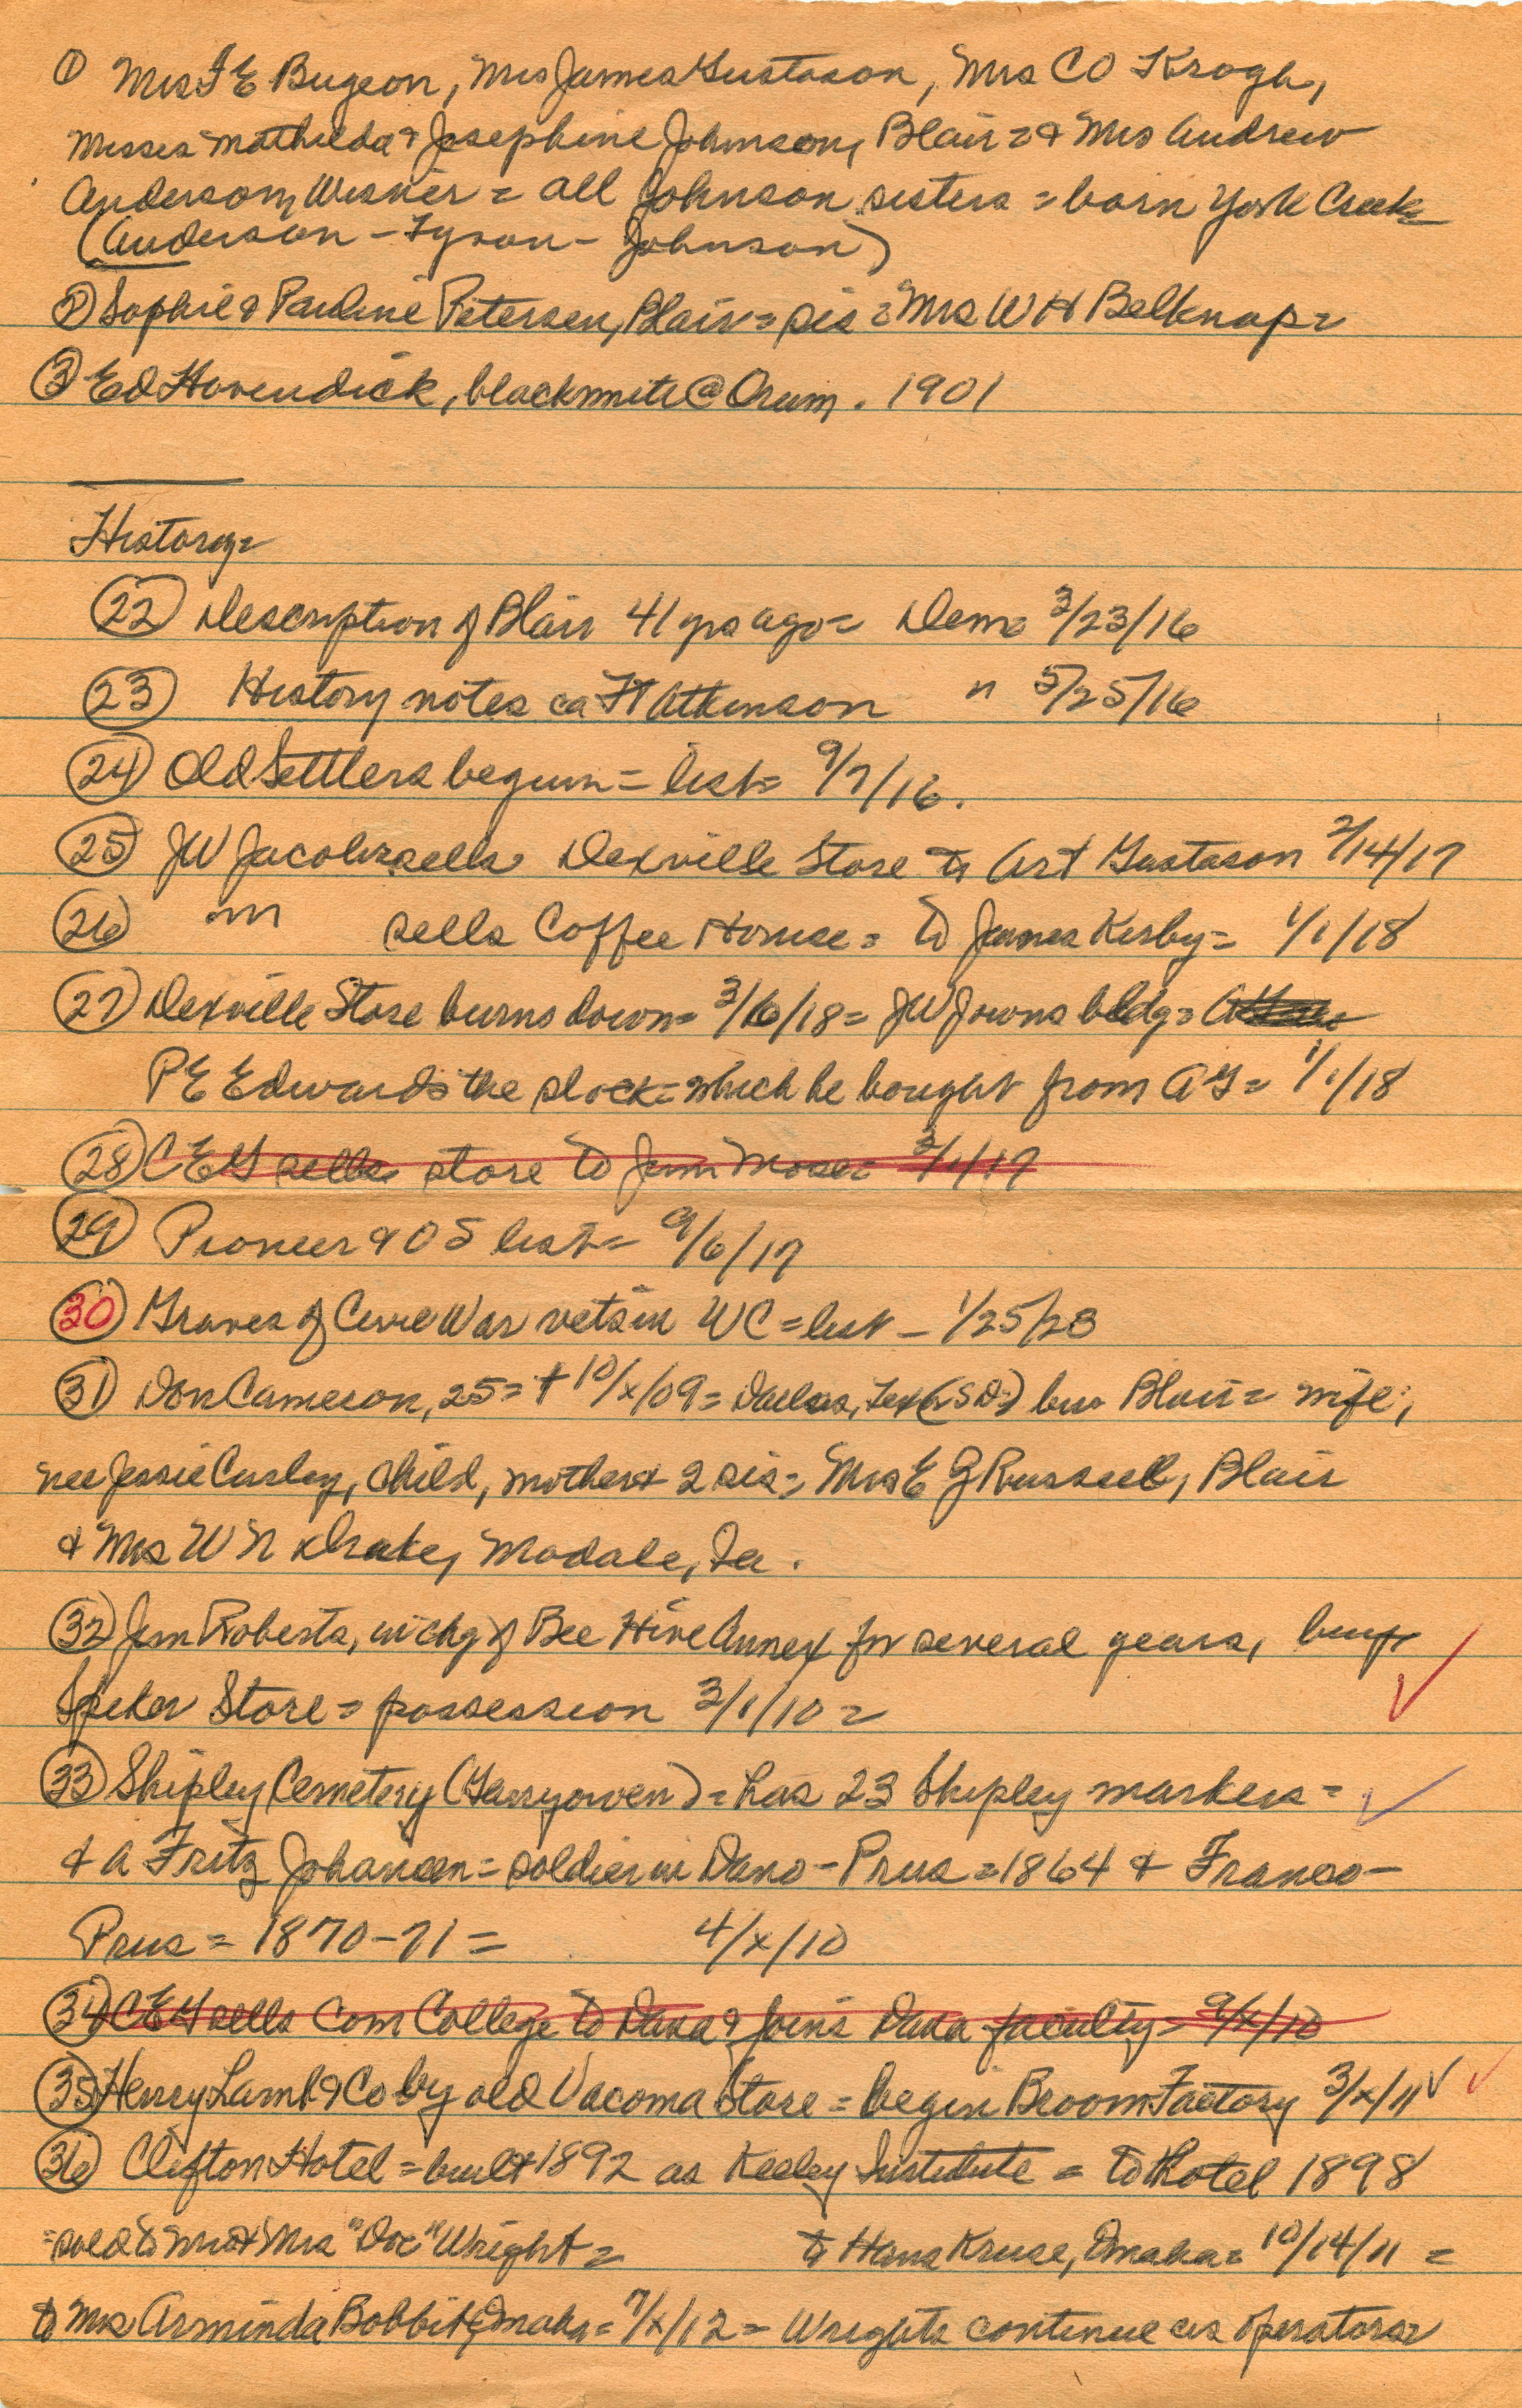 ① Mrs F E Bugeon, Mrs James Gustason, Mrs C O Krogh,
Misses Mathilda & Josephine Johnson, Blair = & Mrs Andrew
Anderson, Wisner = all Johnson sisters = born York Creek
(Anderson - Tyson - Johnson)
② Sophie & Pauline Petersen, Blair = sis = Mrs W H Belknap =
③ Ed Hovendick, blacksmith @ Orum. 1901
History =
㉒ Description of Blair 41 yrs ago = Dem = 3/23/16
㉓ History notes ca Ft Atkinson " 5/25/16
㉔ Old Settlers begun = list = 9/7/16.
㉕ JW Jacobs sells Dexville Store to Art Gustason 2/14/17
㉖ " " sells Coffee House = to James Kirby = 1/1/18
㉗ Dexville Store burns down = 3/6/18 = JW J owns bldg =
P E Edwards the stock = which he bought from AG = 1/1/18
㉘ C E G sells store to Jim Mose = 3/1/17
㉙ Pioneer & O S list = 9/6/17
㉚ Graves of Civil War vets in WC = list - 1/25/28
㉛ Don Cameron, 25 = † 10/x/09 = Dallas, Tex (SD?) bur Blair = wife,
nee Jessie Curley, child, mother & 2 sis = Mrs E G Russell, Blair
& Mrs W N Drake, Modale, Ia.
㉜ Jim Roberts, in chg of Bee Hive Annex for several years, buys
Spiker Store = possession 3/1/10 =
㉝ Shipley Cemetery (Garryowen) = has 23 Shipley markers =
& a Fritz Johansen = soldier in Dano-Prus = 1864 & Franco-
Prus = 1870-71 = 4/x/10
㉞ C E G sells Com College to Dana & joins Dana faculty = 9/x/10
㉟ Henry Lamb & Co by old Vacoma Store = begin Broom Factory 3/x/11
㊱ Clifton Hotel = built 1892 as Keeley Institute = to Hotel 1898
= sold to Mr & Mrs "Doc" Wright = to Hans Kruse, Omaha = 10/14/11 =
to Mrs Arminda Bobbit, Omaha = 7/x/12 = Wrights continue as operators =